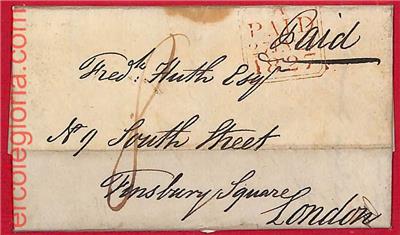 Paid
PAID
1827
Fredk. Huth Esqr
No 9 South Street
Finsbury Square
London
8
ercolegloria.com